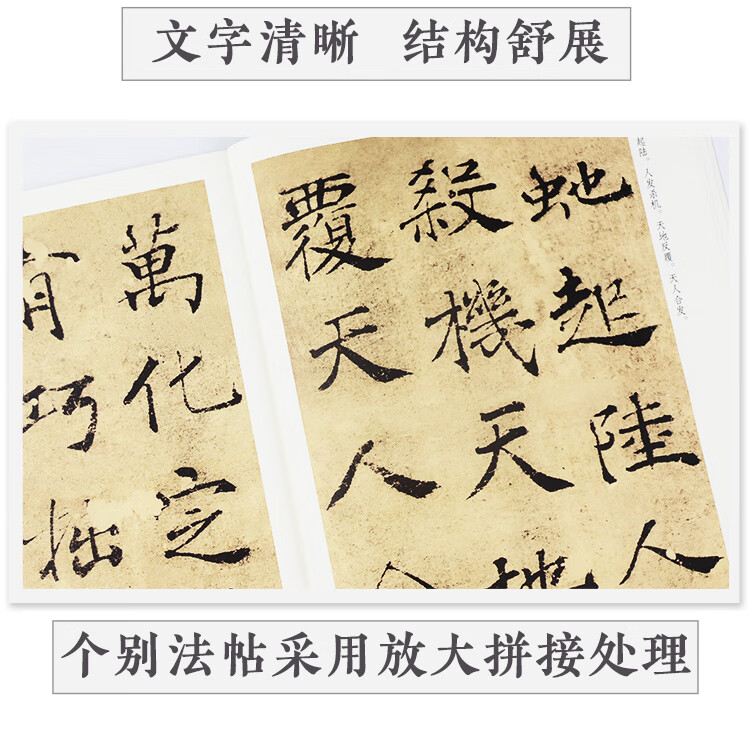 文字清晰 结构舒展
起陆。人发杀机。天地反覆。天人合发。
虵起陸人
殺機天地
覆天人
萬化定
有巧拙
个别法帖采用放大拼接处理